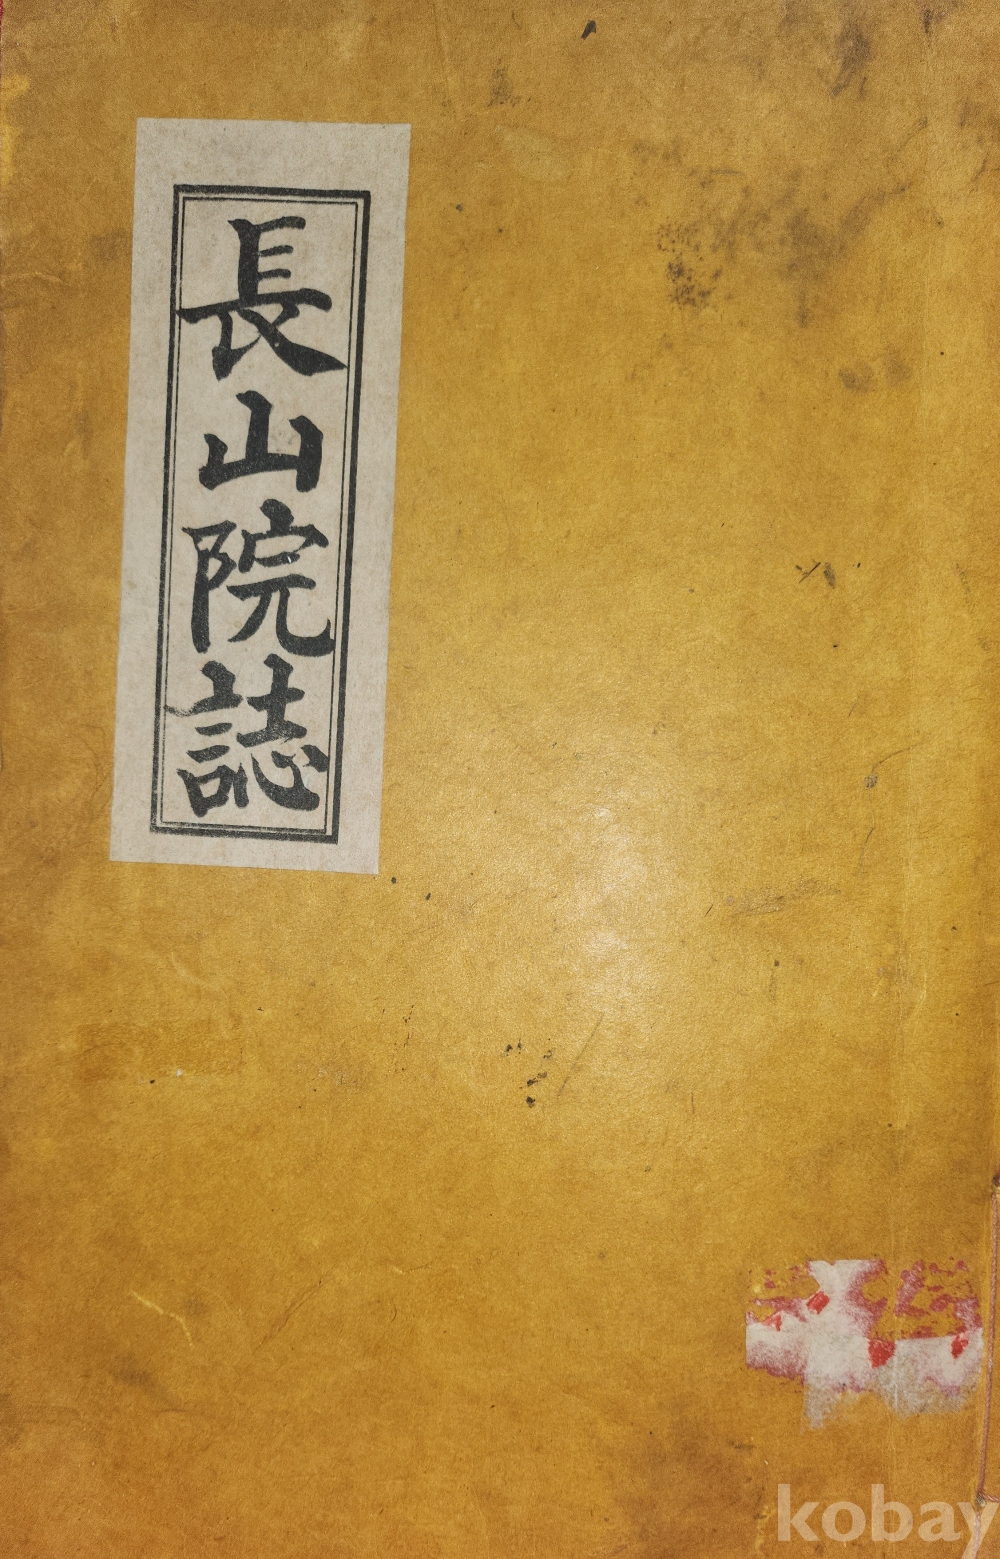 長山院誌
kobay